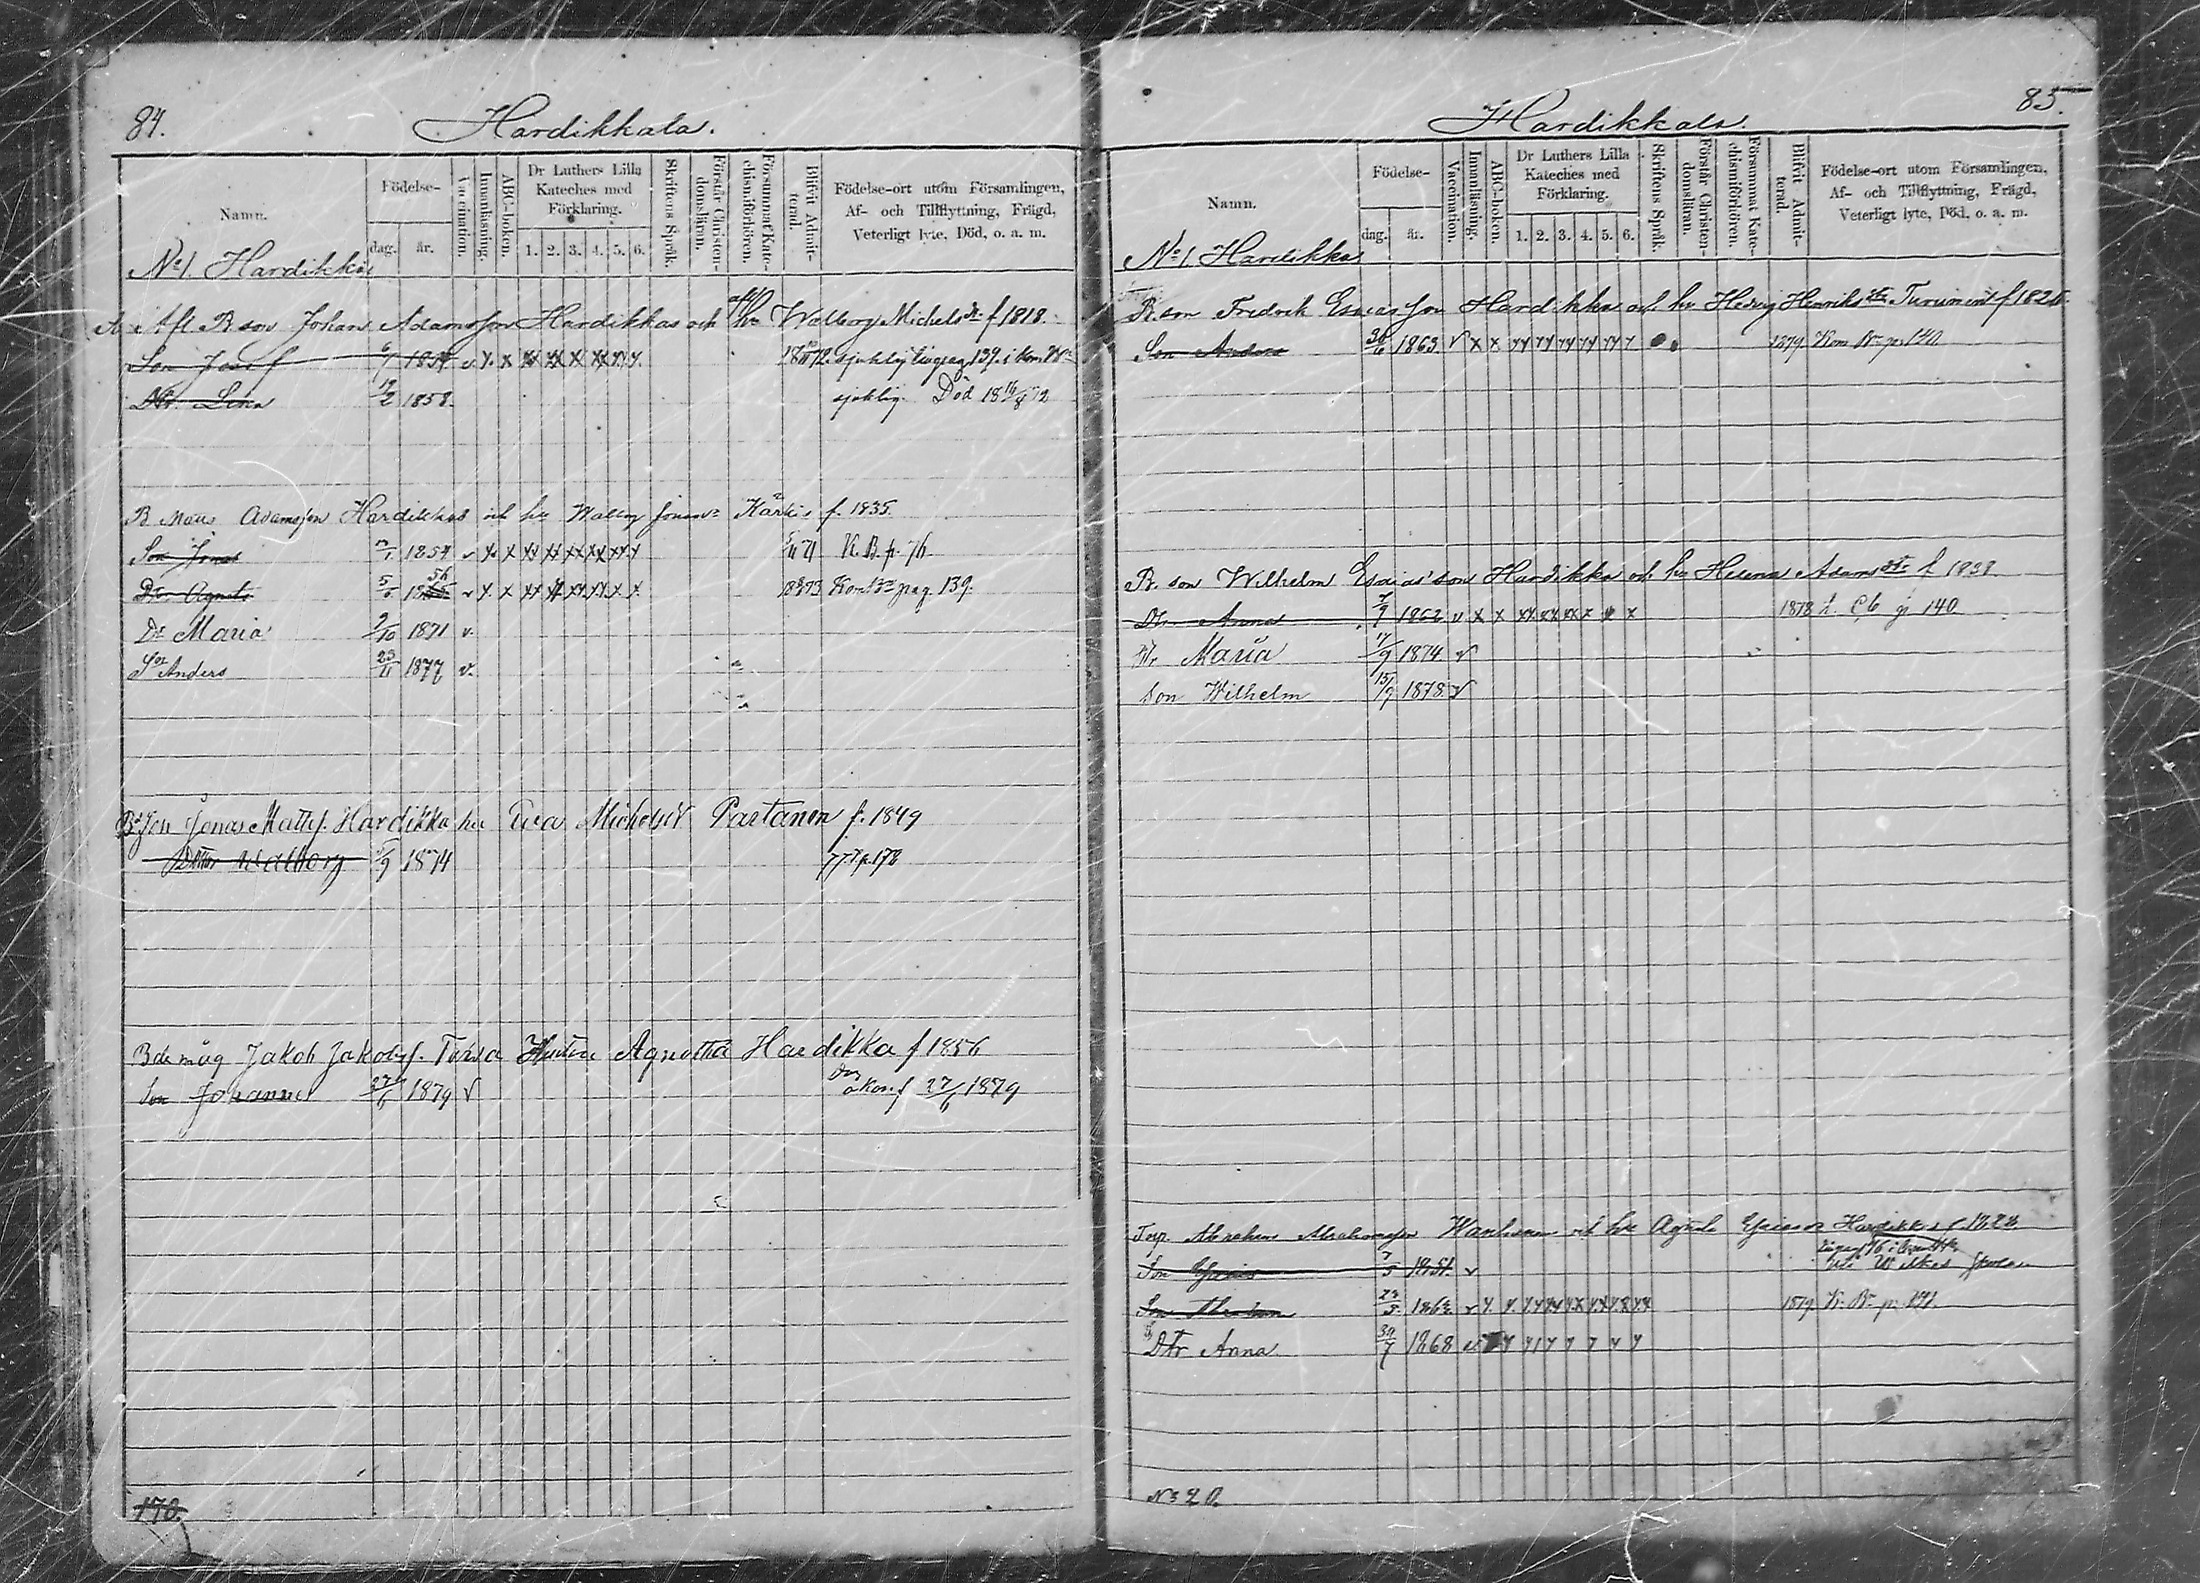 84.
Hardikkala.
Namn.
Födelse-
dag. år.
Vaccination.
Innanläsning.
ABC-boken.
Dr Luthers Lilla Kateches med Förklaring.
1. 2. 3. 4. 5. 6.
Skriftens Språk.
Förstår Christendomsläran.
Försummat Katechismiförhören.
Blifvit Admitterad.
Födelse-ort utom Församlingen,
Af- och Tillflyttning, Frägd,
Veterligt lyte, Död, o. a. m.
No 1. Hardikka
Afl B. son Johan Adamsson Hardikkas och hu Walborg Michelsdr f 1818.
Son Josef 6/1 1854 v x x xx xx x xx x x sjuklig pag 139. i Kom Bn
Dtr. Lena 19/2 1858. sjuklig. Död 18 16/8 72
B Matts Adamsson Hardikkas och hu Walborg Jonasdr f. 1835
Son Jonas 1854 v x x xx xx xx xx x x 71 K. B. p. 76
Dtr. Agneta 5/6 1856 v x x xx xx xx xx x x 18 73 Kom Bn pag. 139.
Dr Maria 9/10 1871 v.
Son Anders 23/11 1877 v.
Bd. son Jonas Matts. Hardikka hu Eva Michelsdr Partanen f. 1849
Dotter Walborg /9 1874 p. 178
Bde måg Jakob Jakobss. Tursa Hustru Agnetha Hardikka f 1856
Son Johannes 27/6 1879 v 27/6 1879
170.
85.
Hardikkala.
Namn.
Födelse-
dag. år.
Vaccination.
Innanläsning.
ABC-boken.
Dr Luthers Lilla Kateches med Förklaring.
1. 2. 3. 4. 5. 6.
Skriftens Språk.
Förstår Christendomsläran.
Försummat Katechismiförhören.
Blifvit Admitterad.
Födelse-ort utom Församlingen,
Af- och Tillflyttning, Frägd,
Veterligt lyte, Död, o. a. m.
No 1. Hardikka
B. son Fredrik Esaiasson Hardikka och hu Hedvig Henriksdr Turunen f 1826.
Son Anders 1863 v x x 1879 Kom Bn p. 140
B. son Wilhelm Esaias'son Hardikka och hu Helena Adamsdtr f 1838
Dtr. Anna 7/9 1862 v x x xx xx xx x x x 1878 p 140
Dtr Maria 17/9 1874 v
Son Wilhelm 15/9 1878 v
Torp. Abraham Abrahamsson och hu Agneta Hardikka f. 1828
Son Esaias 7/5 v
Son Abraham 23/5 1862 v 1879 K. Bn p.
Dtr Anna 30/7 1868